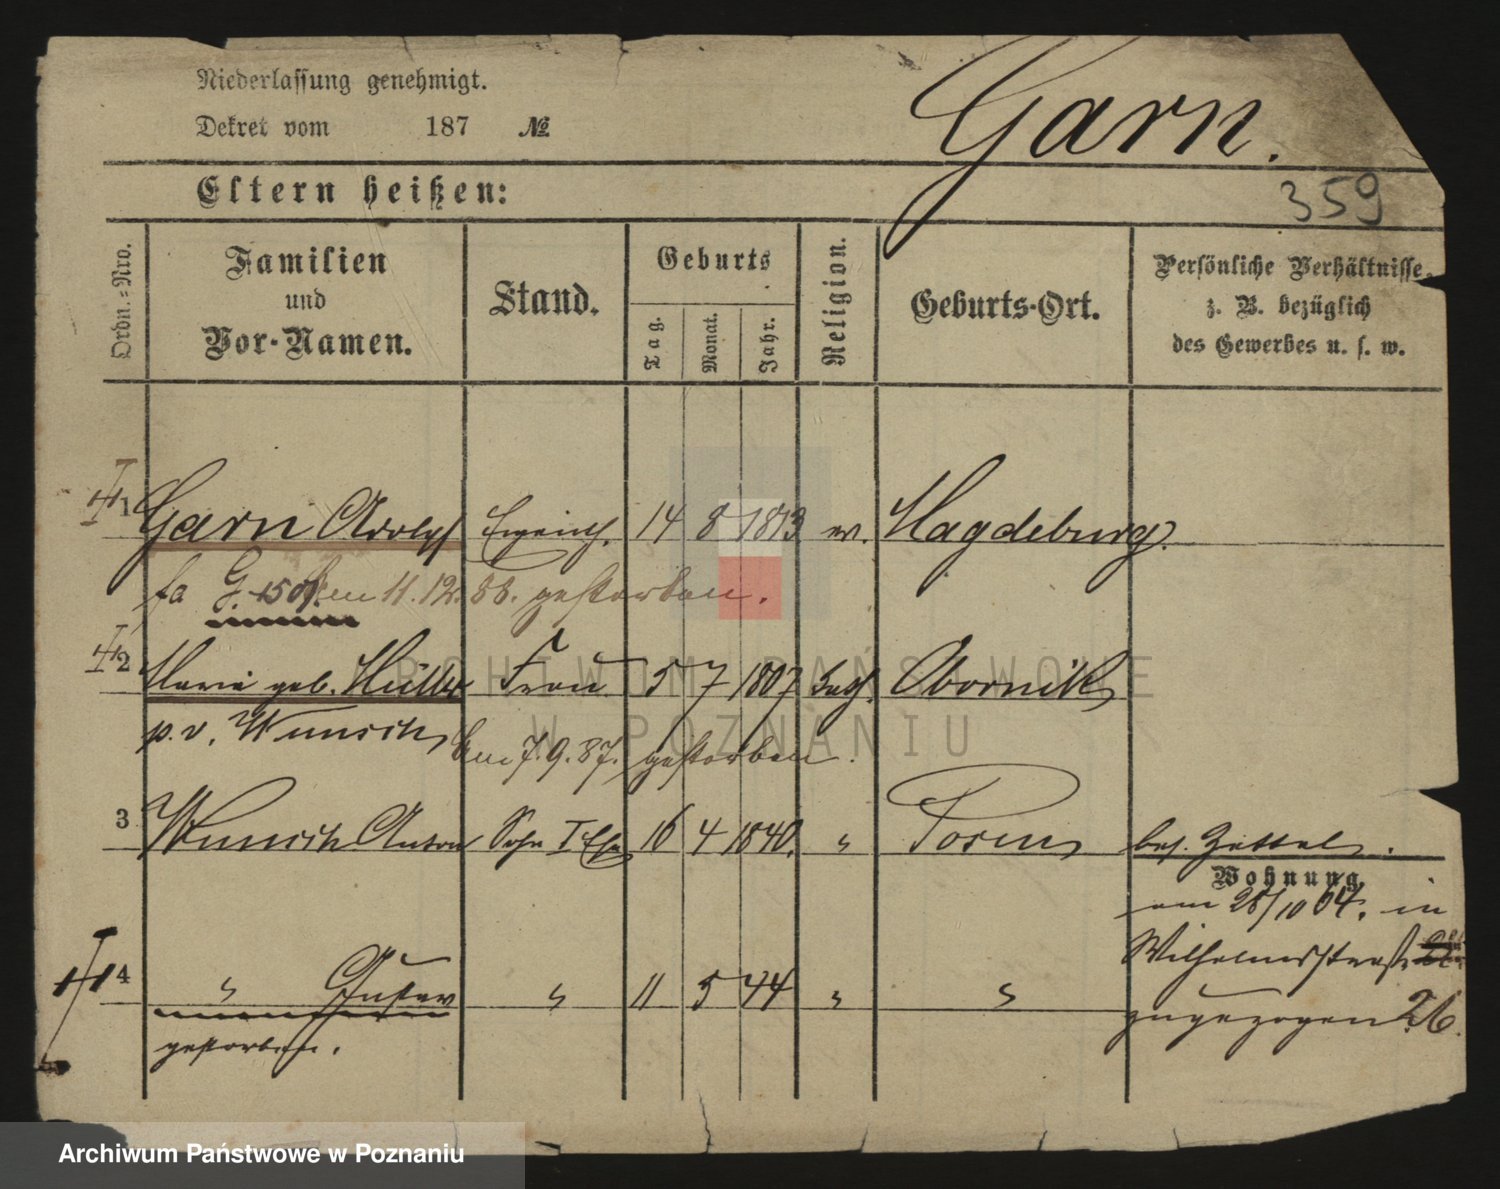 Niederlassung genehmigt.
Dekret vom 187 №
Garn.
Eltern heißen:
359
Ordn.=Nro.
Familien
und
Vor-Namen.
Stand.
Geburts
Tag.
Monat.
Jahr.
Religion.
Geburts-Ort.
Persönliche Verhältnisse,
z. B. bezüglich
des Gewerbes u. s. w.
1 Garn Adolph 14 8 1813 ev. Magdeburg.
G. 11. 12. 88. gestorben.
2 Maria geb. Müller Frau 5 7 1807 kath. Obornik
p. v. Wunsch am 7. 9. 87. gestorben.
3 Wunsch Anton Sohn I Ehe 16 4 1840. " Posen bes. Zettel.
Wohnung
am 28/10 64. in
Wilhelmsstraße
4 " Gustav " 11 5 44 " "
zugezogen 26.
gestorben.
ARCHIWUM PAŃSTWOWE
W POZNANIU
Archiwum Państwowe w Poznaniu